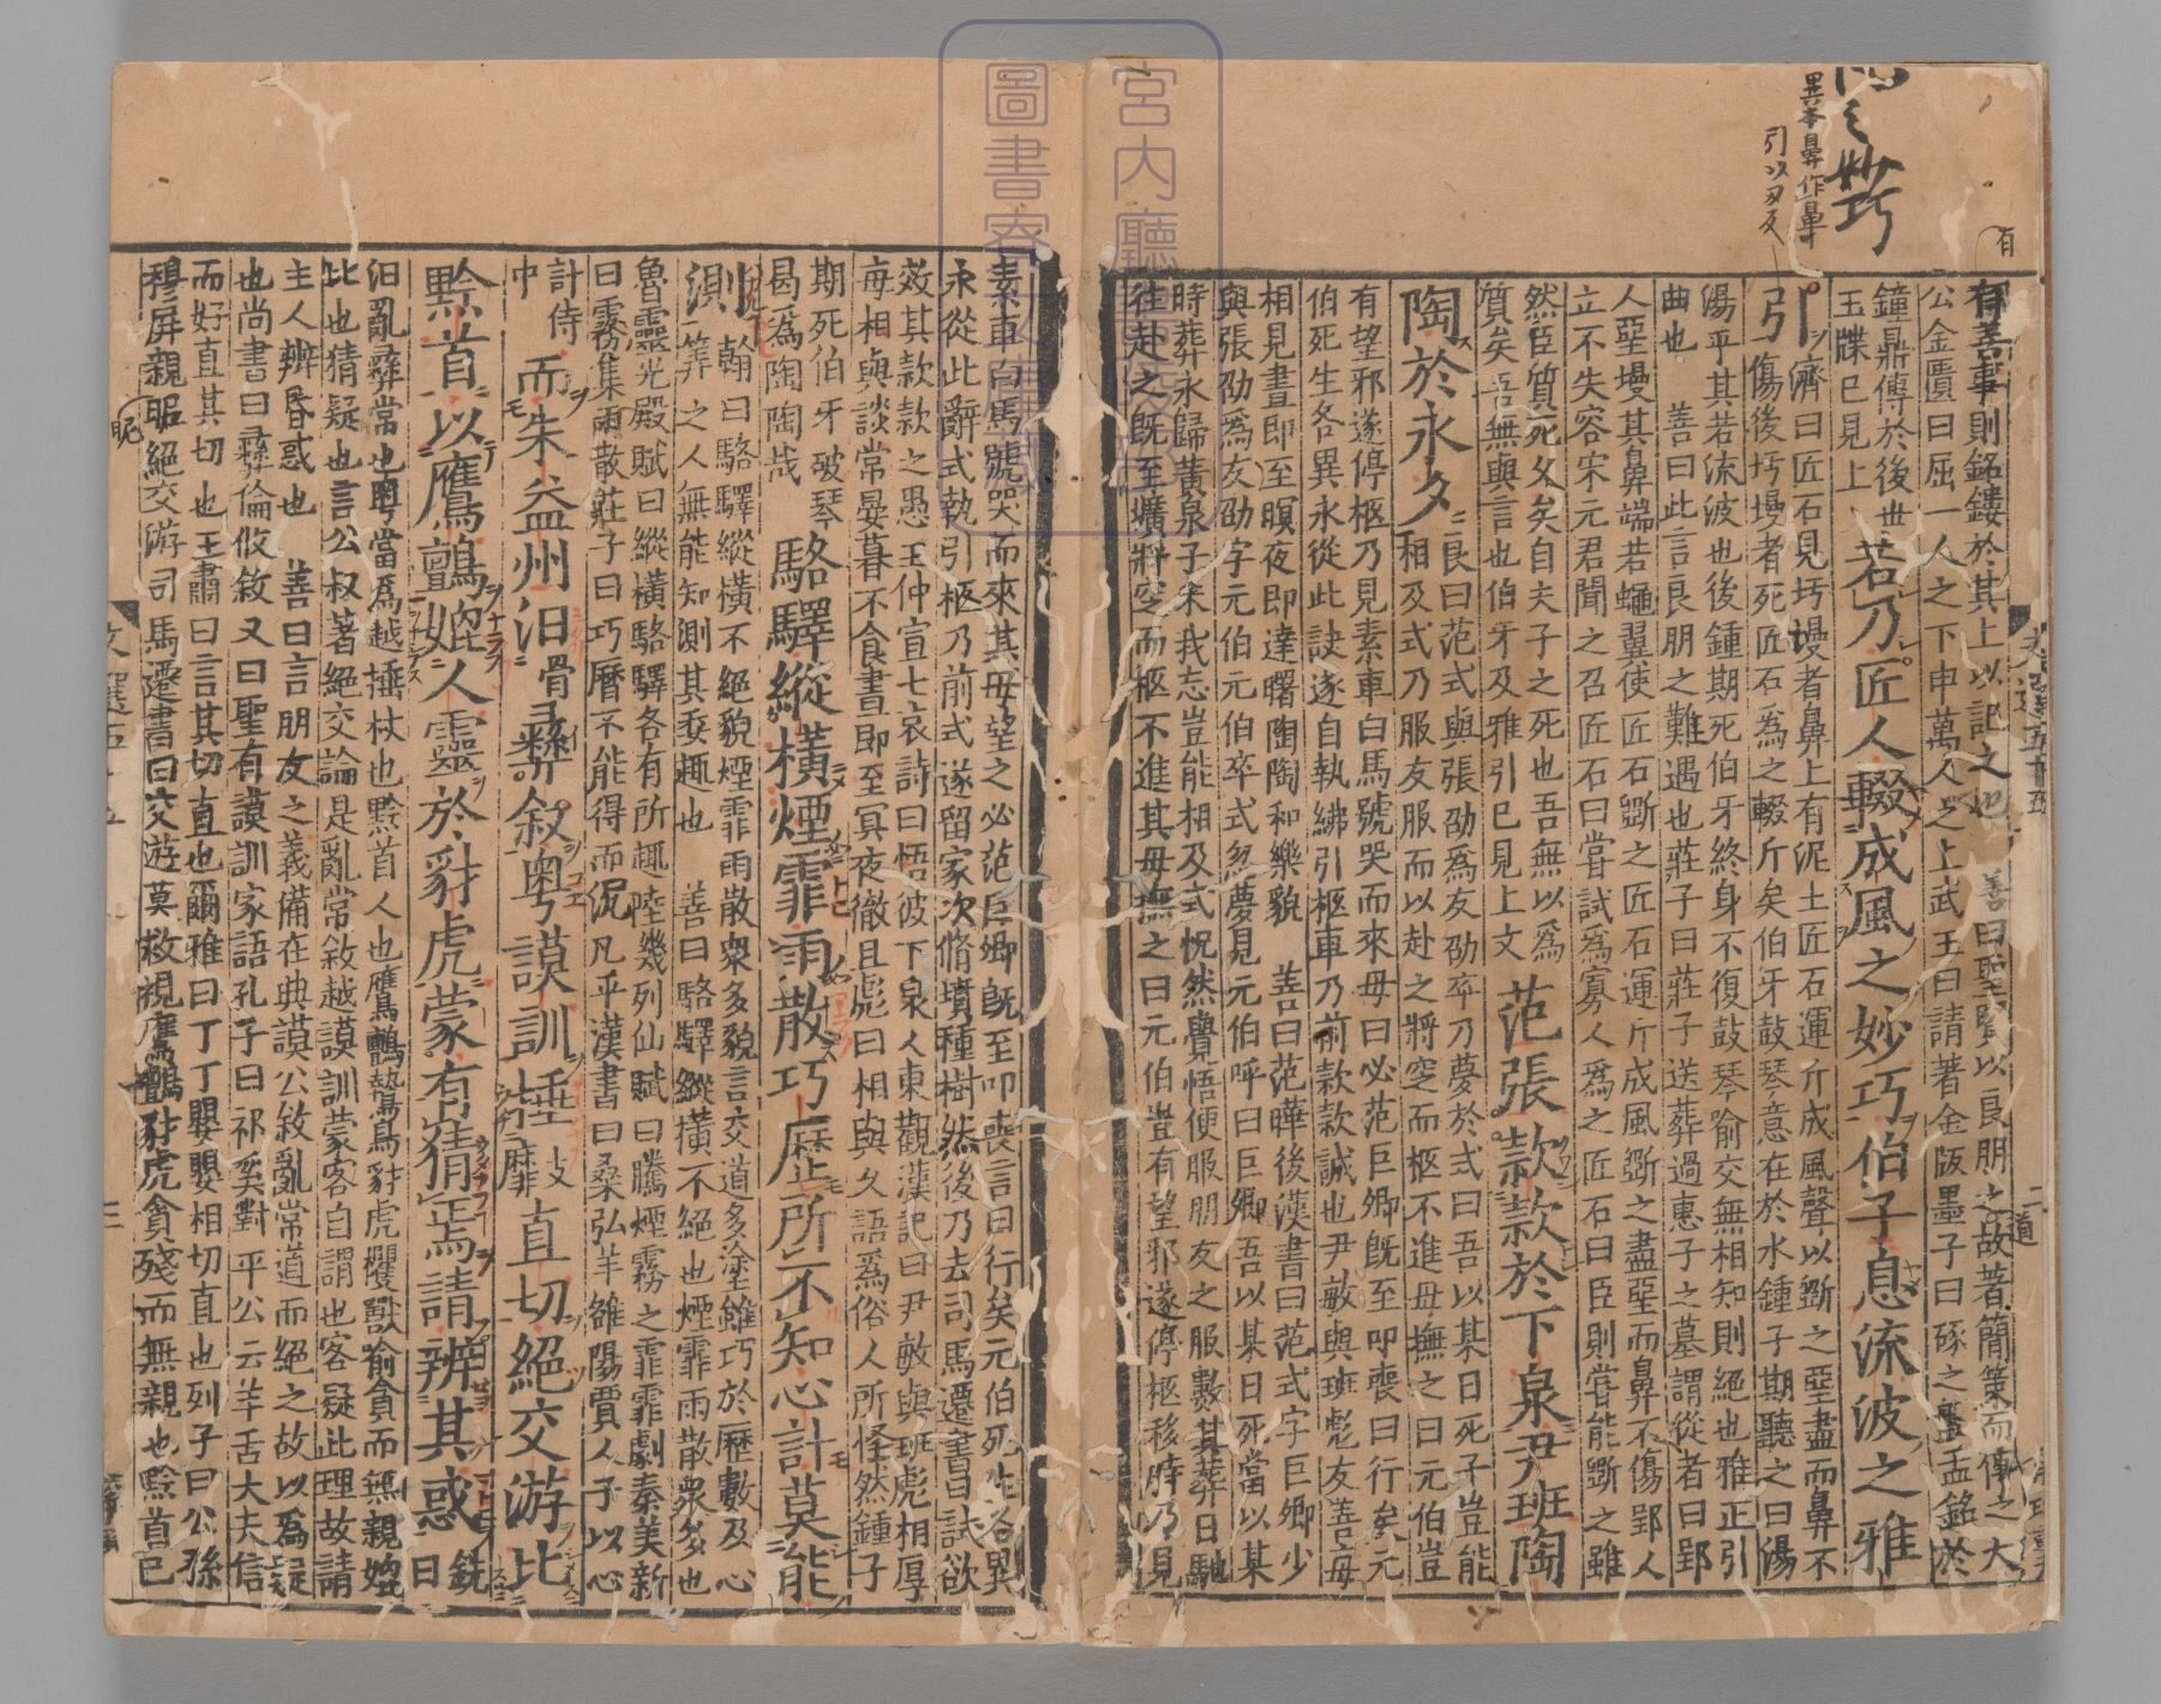 有善事則銘鏤於其上以記之也 善曰聖賢以良朋之故著簡策而傳之大
公金匱曰屈一人之下申萬人之上武王曰請著金版墨子曰琢之盤盂銘於
鐘鼎傳於後世
玉牒已見上
若乃匠人輟成風之妙巧伯子息流波之雅
引
濟曰匠石見圬墁者鼻上有泥土匠石運斤成風聲以斵之堊盡而鼻不
傷後圬墁者死匠石爲之輟斤矣伯牙鼓琴意在於水鍾子期聽之曰湯
湯乎其若流波也後鍾期死伯牙終身不復鼓琴喻交無相知則絕也雅正引
曲也 善曰此言良朋之難遇也莊子曰莊子送葬過惠子之墓謂從者曰郢
人堊墁其鼻端若蠅翼使匠石斵之匠石運斤成風斵之盡堊而鼻不傷郢人
立不失容宋元君聞之召匠石曰嘗試爲寡人爲之匠石曰臣則嘗能斵之雖
然臣質死久矣自夫子之死也吾無以爲
質矣吾無與言也伯牙及雅引已見上文
范張款款於下泉尹班陶
陶於永夕
良曰范式與張劭爲友劭卒乃夢於式曰吾以某日死子豈能
相及式乃服友服而以赴之將窆而柩不進母撫之曰元伯豈
有望邪遂停柩乃見素車白馬號哭而來母曰必范巨卿旣至叩喪曰行矣元
伯死生各異永從此訣遂自執紼引柩車乃前款款誠也尹敏與班彪友善每
相見晝即至暝夜即達曙陶陶和樂貌 善曰范曄後漢書曰范式字巨卿少
與張劭爲友劭字元伯元伯卒式忽夢見元伯呼曰巨卿吾以某日死當以某
時葬永歸黃泉子未我忘豈能相及式怳然覺悟便服朋友之服數其葬日馳
往赴之旣至壙將窆而柩不進其母撫之曰元伯豈有望邪遂停柩移時乃見
素車白馬號哭而來其母望之必范巨卿旣至叩喪言曰行矣元伯死生各異
永從此辭式執引柩乃前式遂留冢次脩墳種樹然後乃去司馬遷書曰試欲
效其款款之愚王仲宣七哀詩曰悟彼下泉人東觀漢記曰尹敏與班彪相厚
每相與談常晏暮不食晝即至冥夜徹旦彪曰相與久語爲俗人所怪然鍾子
期死伯牙破琴
曷爲陶陶哉
駱驛縱橫煙霏雨散巧歷所不知心計莫能
測
翰曰駱驛縱橫不絕貌煙霏雨散衆多貌言交道多塗雖巧於歷數及心
筭之人無能知測其委趣也 善曰駱驛縱橫不絕也煙霏雨散衆多也
魯靈光殿賦曰縱橫駱驛各有所趣陸機列仙賦曰騰煙霧之霏霏劇秦美新
曰霧集雨散莊子曰巧曆不能得而況凡乎漢書曰桑弘羊雒陽賈人子以心
計侍
中
而朱益州汩骨彝敘粤謨訓捶直切絕交游比
黔首以鷹鸇媲人靈於豺虎蒙有猜焉請辨其惑
銑
曰
汩亂彝常也粤當爲越捶杖也黔首人也鷹鸇鷙鳥豺虎貜獸喻貪而無親媲
比也猜疑也言公叔著絕交論是亂常敘越謨訓蒙客自謂也客疑此理故請
主人辨昏惑也 善曰言朋友之義備在典謨公叔亂常道而絕之故以爲疑
也尚書曰彝倫攸敘又曰聖有謨訓家語孔子曰祁奚對平公云羊舌大夫信
而好直其切也王肅曰言其切直也爾雅曰丁丁嬰嬰相切直也列子曰公孫
穆屏親昵絕交游司馬遷書曰交遊莫救視鷹鸇豺虎貪殘而無親也黔首已